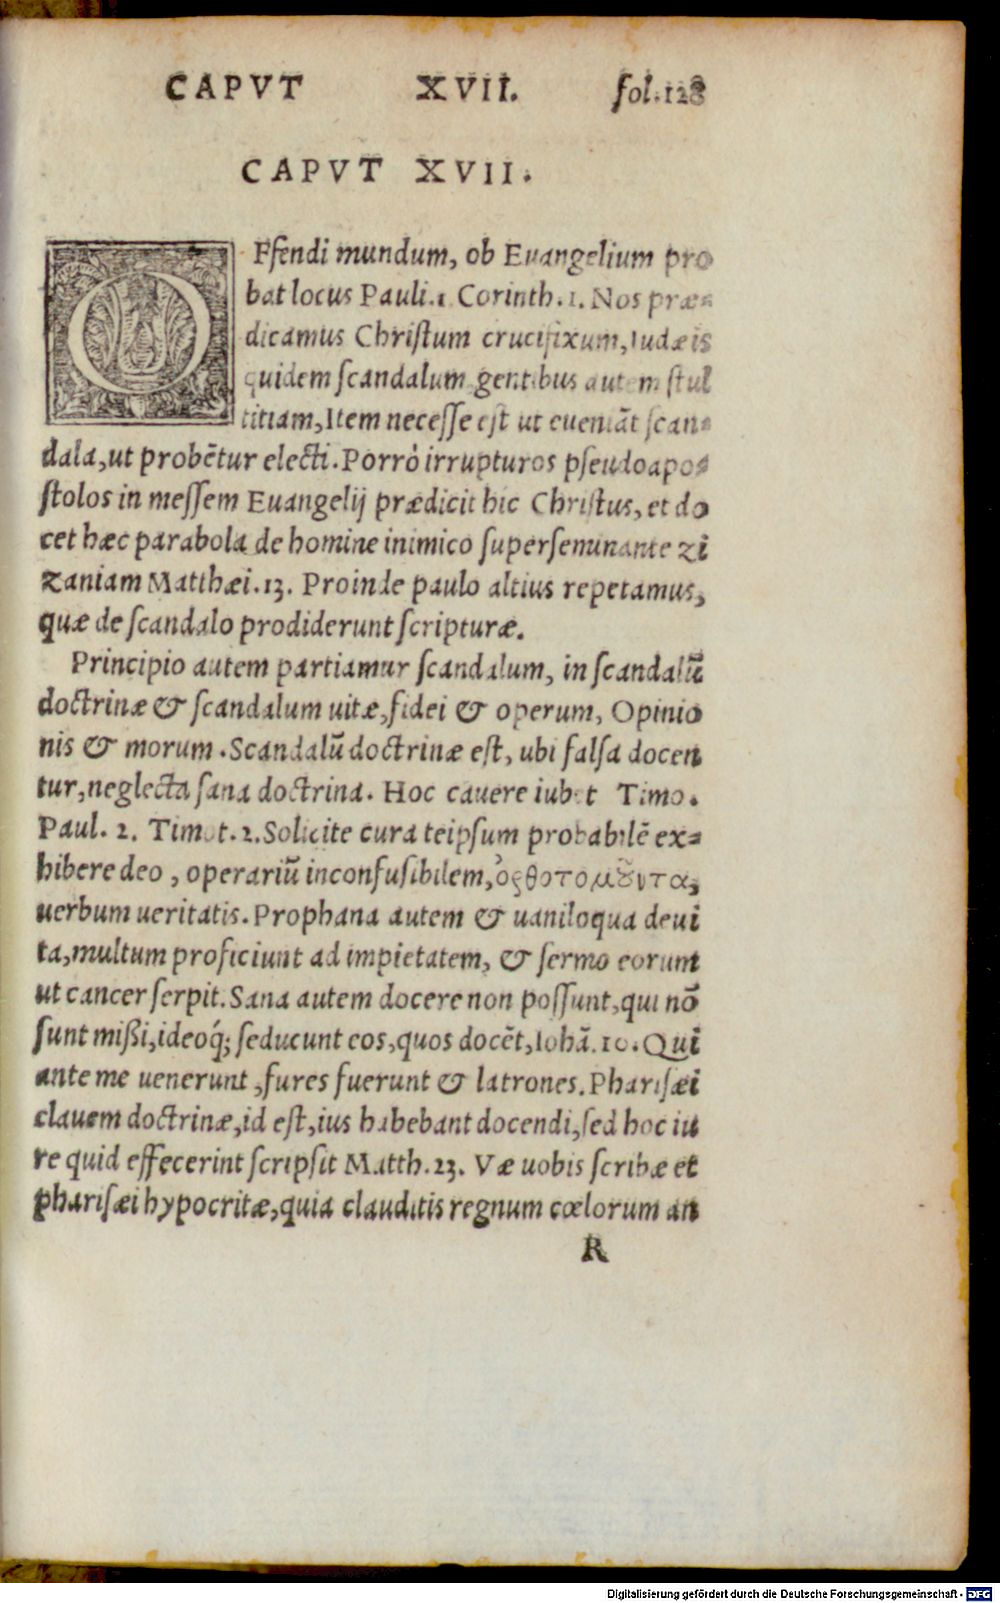 CAPVT XVII. fol.128
CAPVT XVII.
OFfendi mundum, ob Euangelium pro
bat locus Pauli.1 Corinth.1. Nos præ-
dicamus Chriſtum crucifixum, Iudæis
quidem ſcandalum gentibus autem ſtul
titiam, Item neceſſe eſt ut eueniāt ſcan-
dala, ut probētur electi. Porrò irrupturos pſeudoapo-
ſtolos in meſſem Euangelij prædicit hic Chriſtus, et do
cet hæc parabola de homine inimico ſuperſeminante zi
zaniam Matthæi.13. Proinde paulo altius repetamus,
quæ de ſcandalo prodiderunt ſcripturæ.
Principio autem partiamur ſcandalum, in ſcandalū
doctrinæ & ſcandalum uitæ, fidei & operum, Opinio
nis & morum. Scandalū doctrinæ eſt, ubi falſa docen
tur, neglecta ſana doctrina. Hoc cauere iubet Timo.
Paul. 2. Timot. 2. Solicite cura teipſum probabilē ex-
hibere deo, operariū inconfuſibilem, ὀρθοτομοῦντα,
uerbum ueritatis. Prophana autem & uaniloqua deui
ta, multum proficiunt ad impietatem, & ſermo eorum
ut cancer ſerpit. Sana autem docere non poſſunt, qui nō
ſunt miſsi, ideoq́; ſeducunt eos, quos docēt, Iohā.10. Qui
ante me uenerunt, fures fuerunt & latrones. Phariſæi
clauem doctrinæ, id eſt, ius habebant docendi, ſed hoc iu
re quid effecerint ſcripſit Matth.23. Væ uobis ſcribæ et
phariſæi hypocritæ, quia clauditis regnum cœlorum an
R
Digitalisierung gefördert durch die Deutsche Forschungsgemeinschaft - DFG